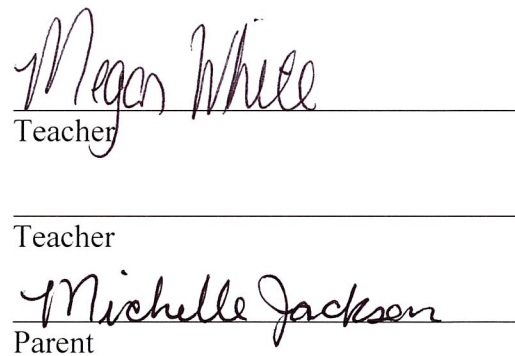 Megan White
Teacher
Teacher
Michelle Jackson
Parent